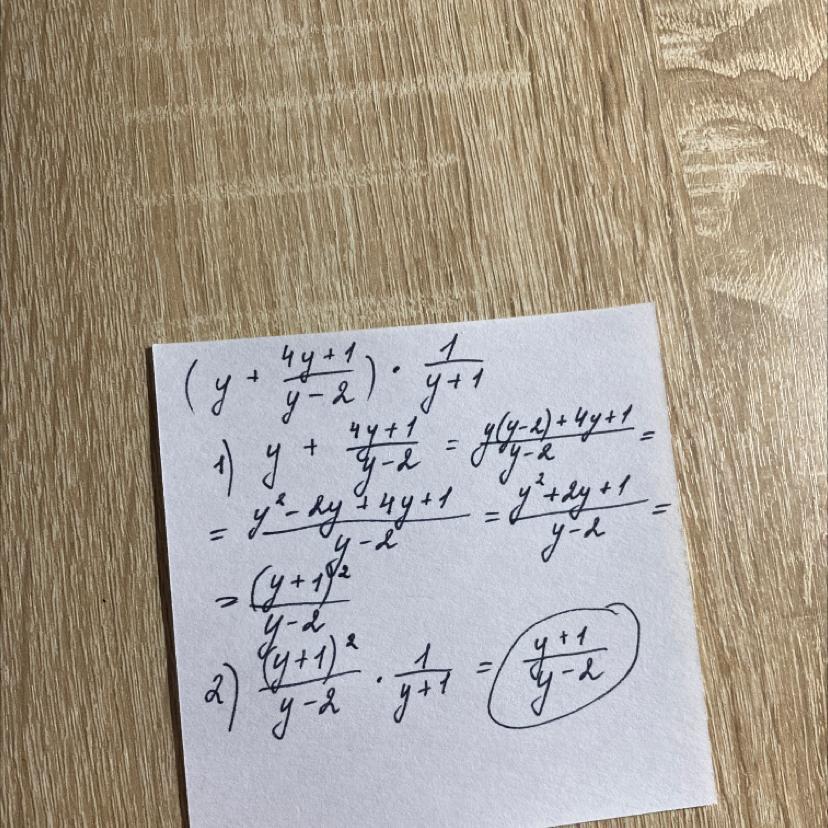 (y + \frac{4y+1}{y-2}) \cdot \frac{1}{y+1}
1) y + \frac{4y+1}{y-2} = \frac{y(y-2)+4y+1}{y-2} =
= \frac{y^2-2y+4y+1}{y-2} = \frac{y^2+2y+1}{y-2} =
= \frac{(y+1)^2}{y-2}
2) \frac{(y+1)^2}{y-2} \cdot \frac{1}{y+1} = \frac{y+1}{y-2}